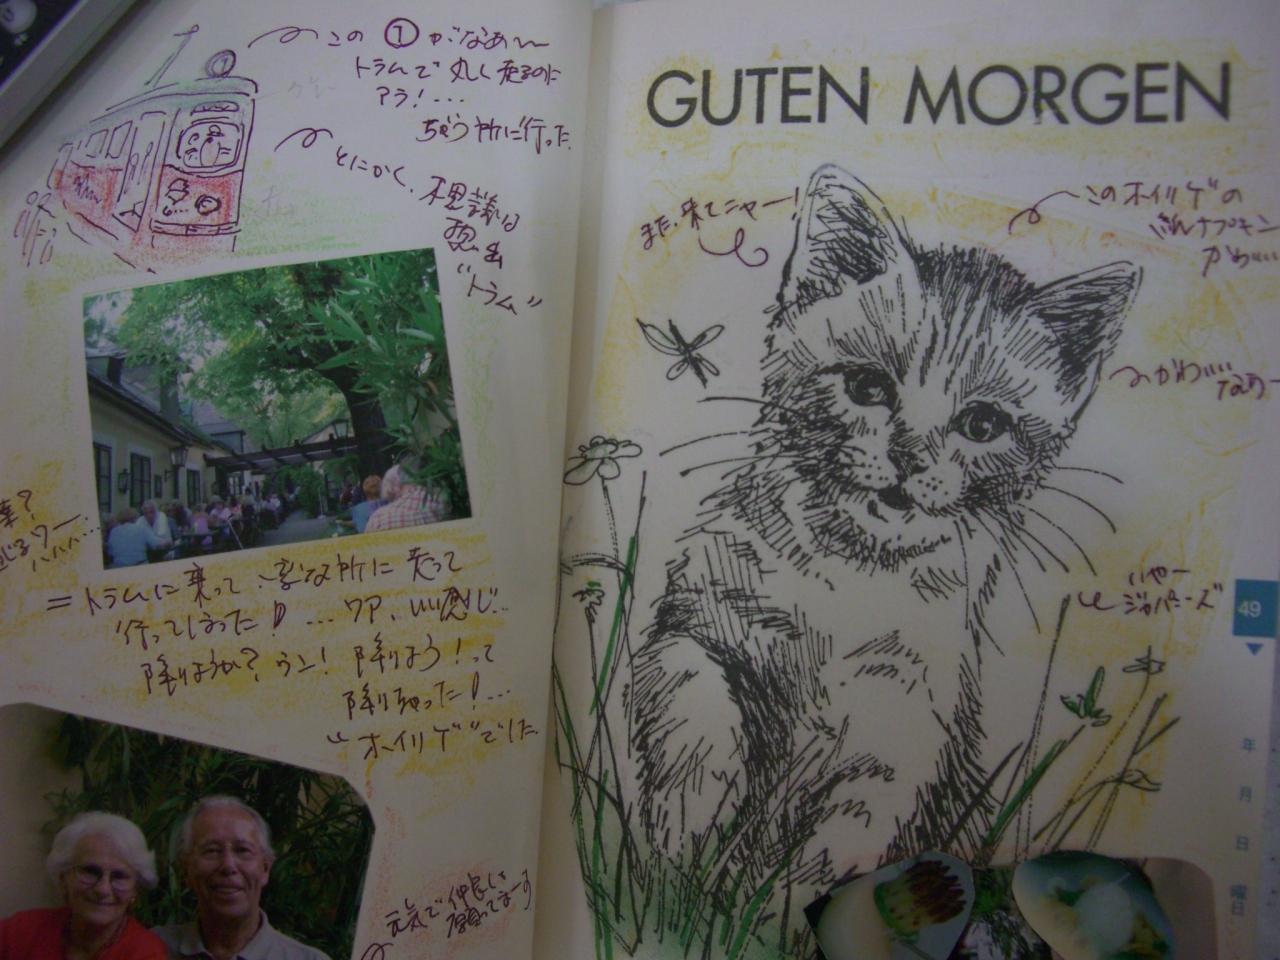 この①がなあ〜
トラムで丸く走るのに
アラ!...
ちがう所に行った
とにかく、不思議な
思い出
"トラム"
= トラムに乗って、変な所に走って
行ってしまった!...ワァ、いい感じ...
降りようか?ウン!降りよう!って
降りちゃった!...
"ホイリゲ"でした
元気で仲良く
願ってまーす
GUTEN MORGEN
また、来てニャー!
このホイリゲの
ナプキン
かわいい
かわいい
いやー
ジャパニーズ
49
年
月
日
曜日